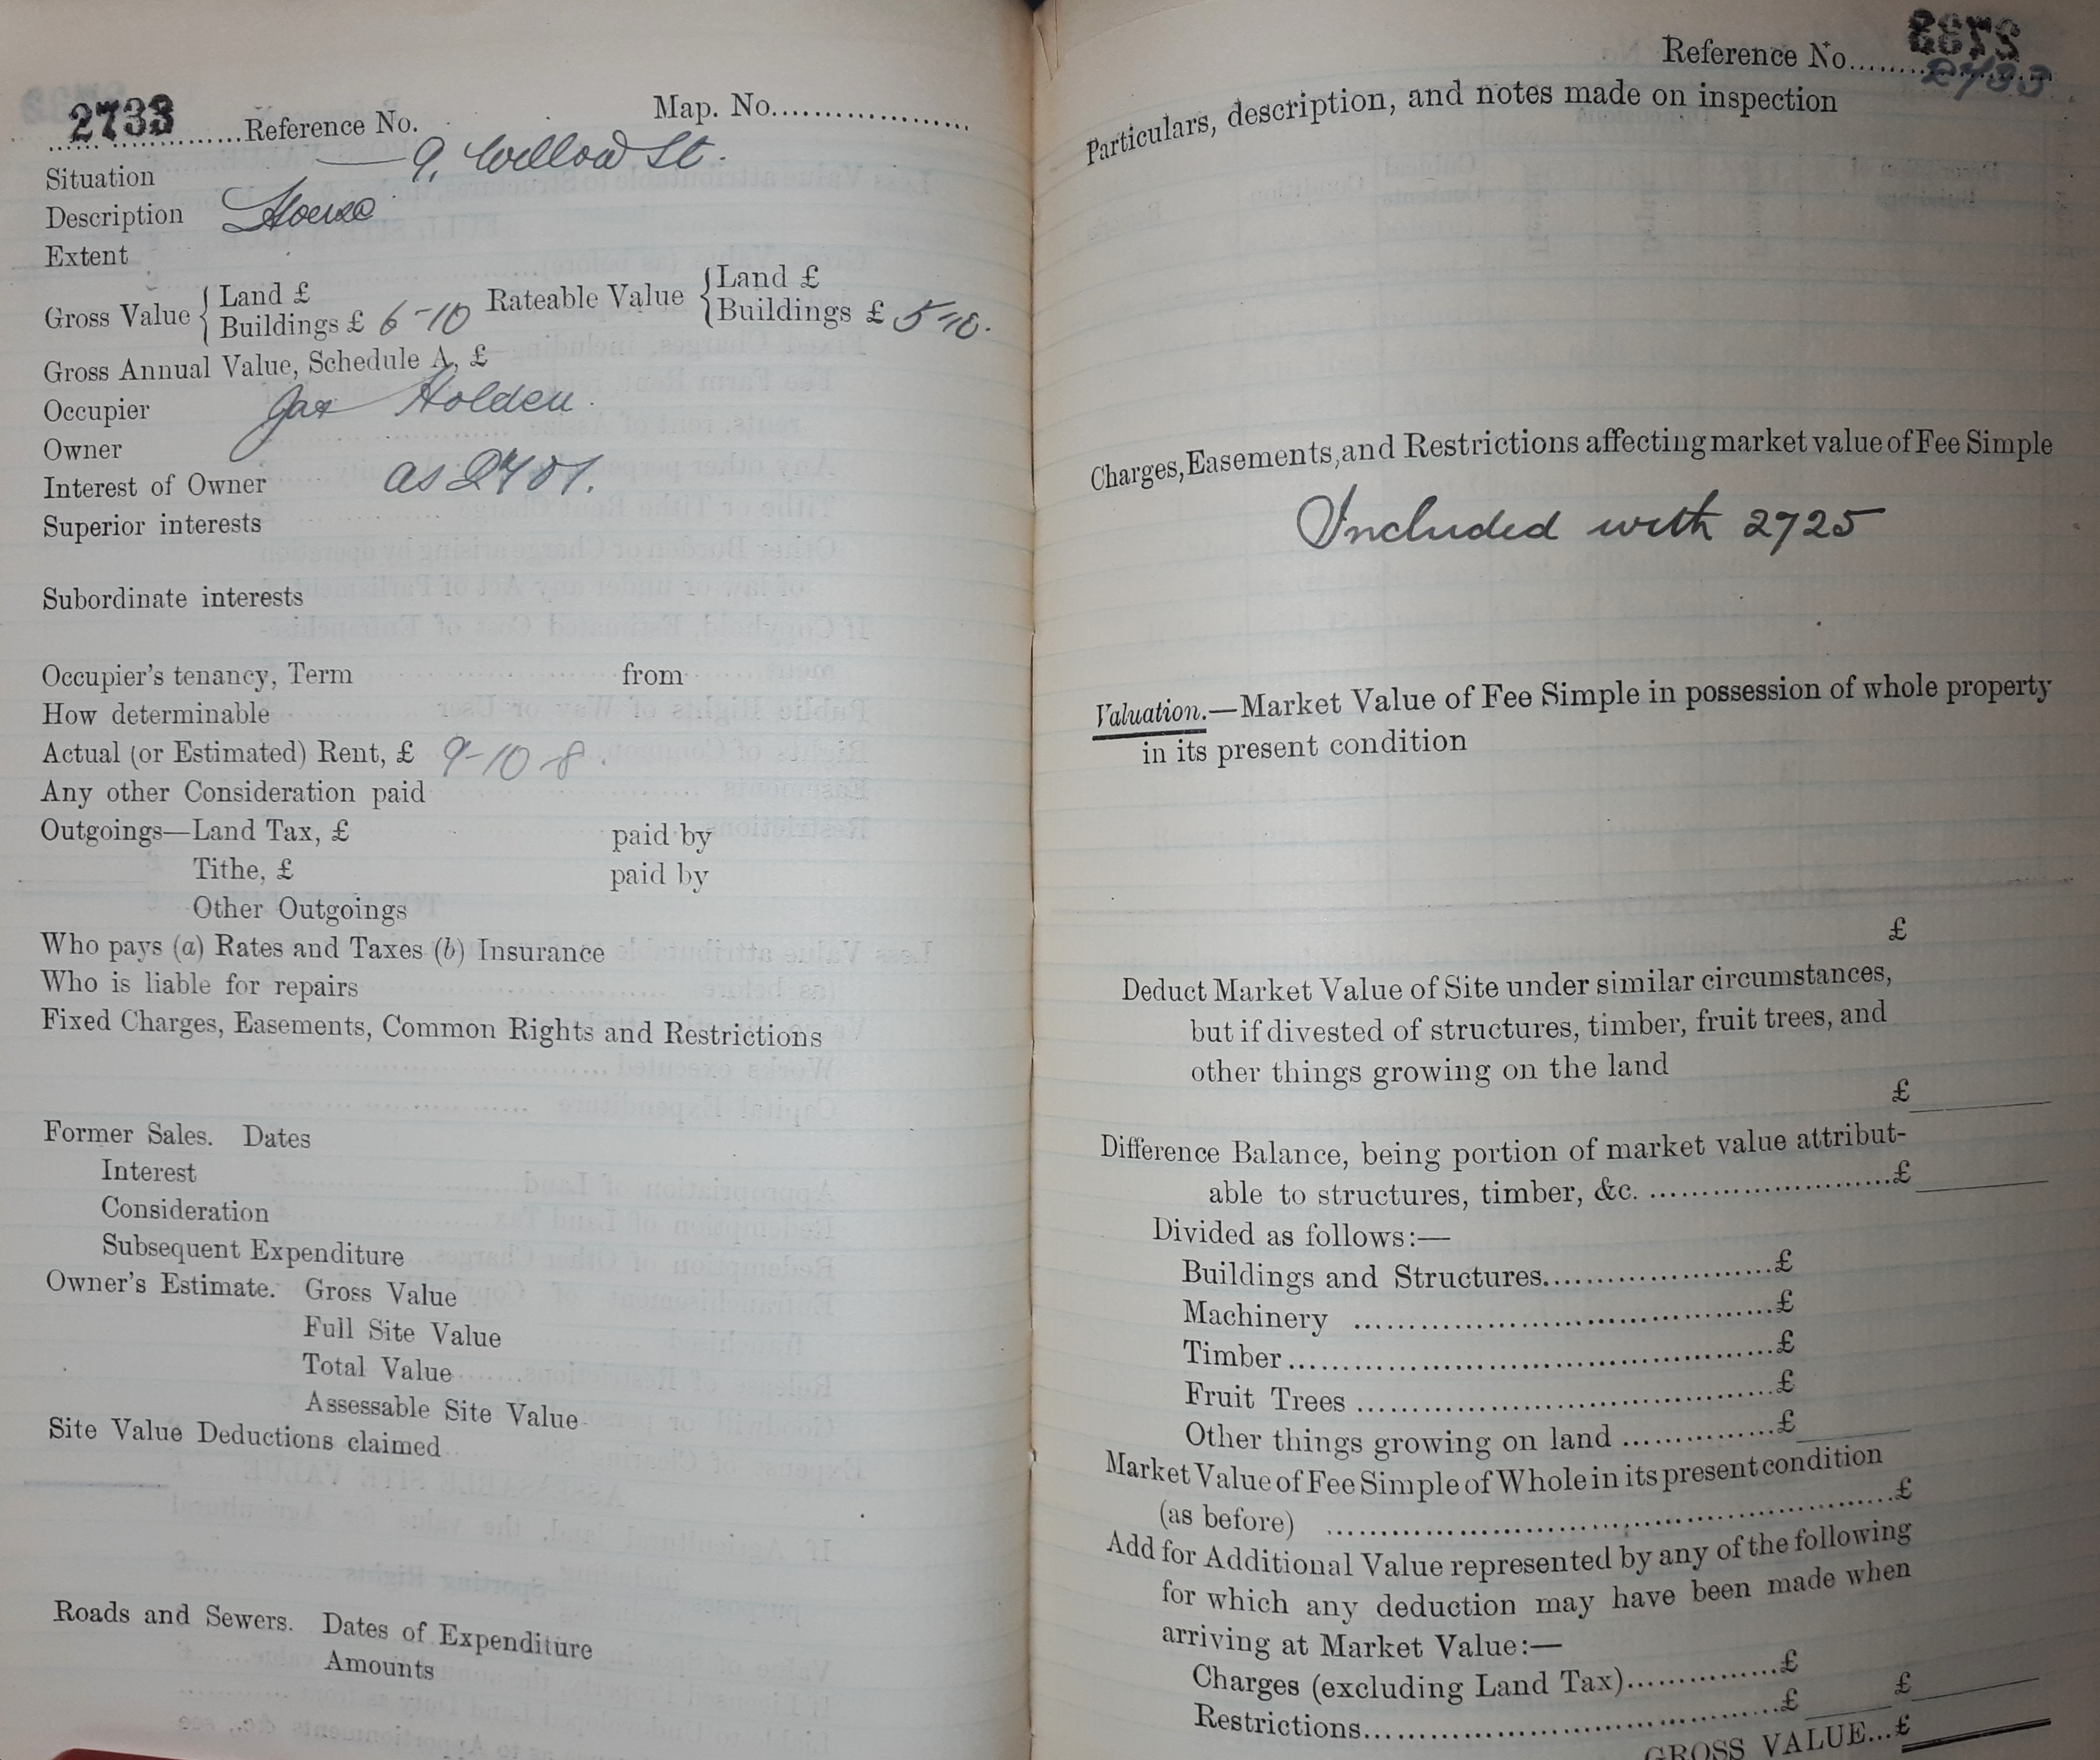 2733 Reference No. Map. No.
Situation 9, Willow St.
Description House
Extent
Gross Value { Land £
Buildings £ 6-10
Rateable Value { Land £
Buildings £ 5-10.
Gross Annual Value, Schedule A, £
Occupier Jas Holden
Owner
Interest of Owner as 2701.
Superior interests
Subordinate interests
Occupier's tenancy, Term from
How determinable
Actual (or Estimated) Rent, £ 9-10-8.
Any other Consideration paid
Outgoings—Land Tax, £ paid by
Tithe, £ paid by
Other Outgoings
Who pays (a) Rates and Taxes (b) Insurance
Who is liable for repairs
Fixed Charges, Easements, Common Rights and Restrictions
Former Sales. Dates
Interest
Consideration
Subsequent Expenditure
Owner's Estimate. Gross Value
Full Site Value
Total Value
Assessable Site Value
Site Value Deductions claimed
Roads and Sewers. Dates of Expenditure
Amounts
Reference No. 2733
Particulars, description, and notes made on inspection
Charges, Easements, and Restrictions affecting market value of Fee Simple
Included with 2725
Valuation.—Market Value of Fee Simple in possession of whole property
in its present condition
£
Deduct Market Value of Site under similar circumstances,
but if divested of structures, timber, fruit trees, and
other things growing on the land
£
Difference Balance, being portion of market value attribut-
able to structures, timber, &c. ........................£
Divided as follows:—
Buildings and Structures........................£
Machinery ........................£
Timber........................£
Fruit Trees ........................£
Other things growing on land ...............£
Market Value of Fee Simple of Whole in its present condition
(as before) ........................£
Add for Additional Value represented by any of the following
for which any deduction may have been made when
arriving at Market Value:—
Charges (excluding Land Tax)...............£
Restrictions........................£ £
GROSS VALUE...£